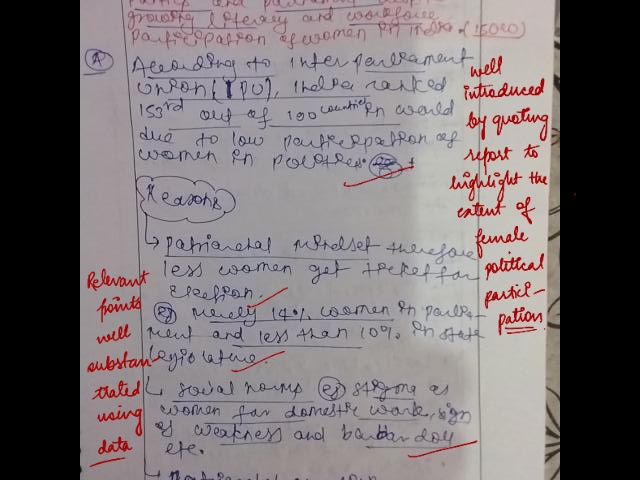 parties and parliament despite
growing literacy and workforce
participation of women in India (150w)
A
According to inter parliament
union (IPU), India ranked
153rd out of 190 countries in world
due to low participation of
women in politics.
well
introduced
by quoting
report to
highlight the
extent of
female
political
partici-
pation
Reasons
↳ patriarchal mindset therefore
less women get ticket for
election.
eg merely 14% women in parlia-
ment and less than 10% in state
legislature.
Relevant
points
well
substan
trated
using
data
↳ social norms eg stigma as
women for domestic work, sign
of weakness and barbar doll
etc.